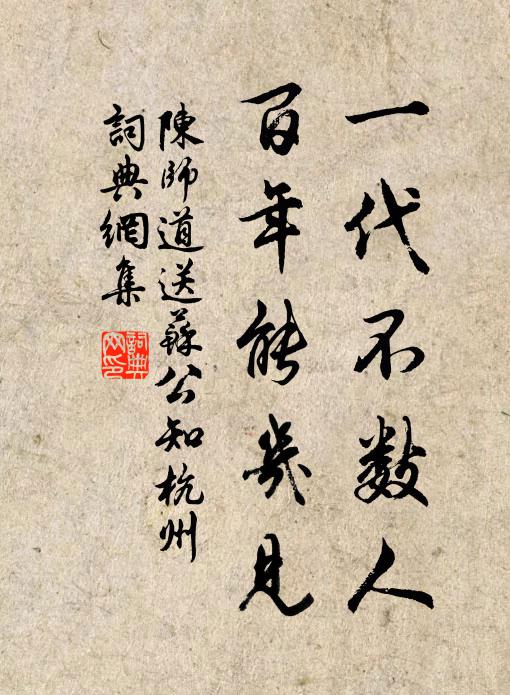 一代不数人
百年能幾見
陳師道送蘇公知杭州
詞典網集
詞典網印